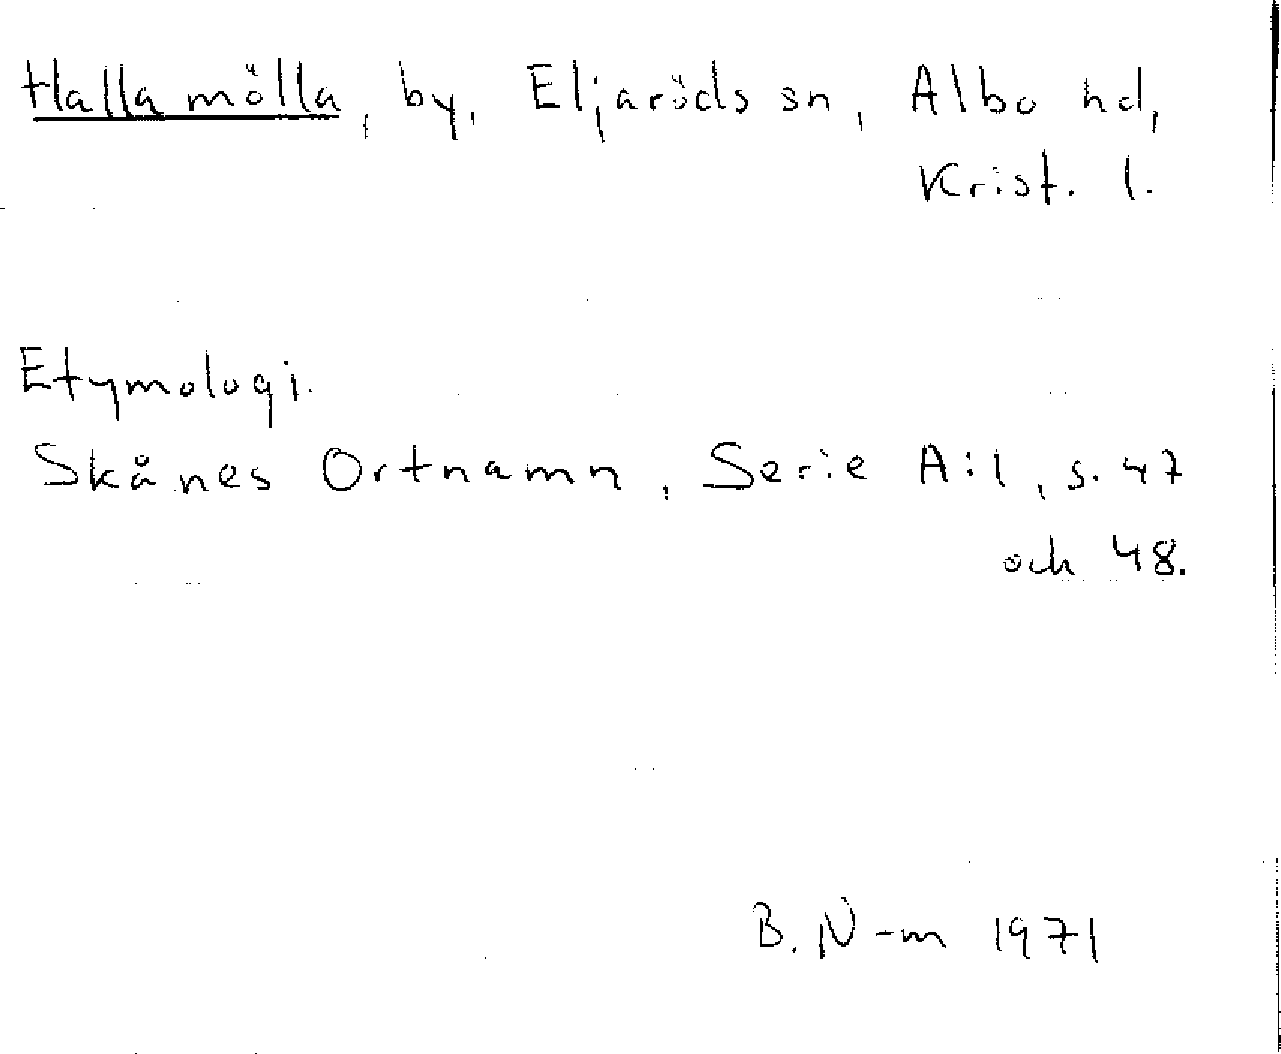 Hallamölla, by, Eljaröds sn, Albo hd,
Krist. l.
Etymologi.
Skånes Ortnamn, Serie A:1, s. 47
och 48.
B. N-m 1971